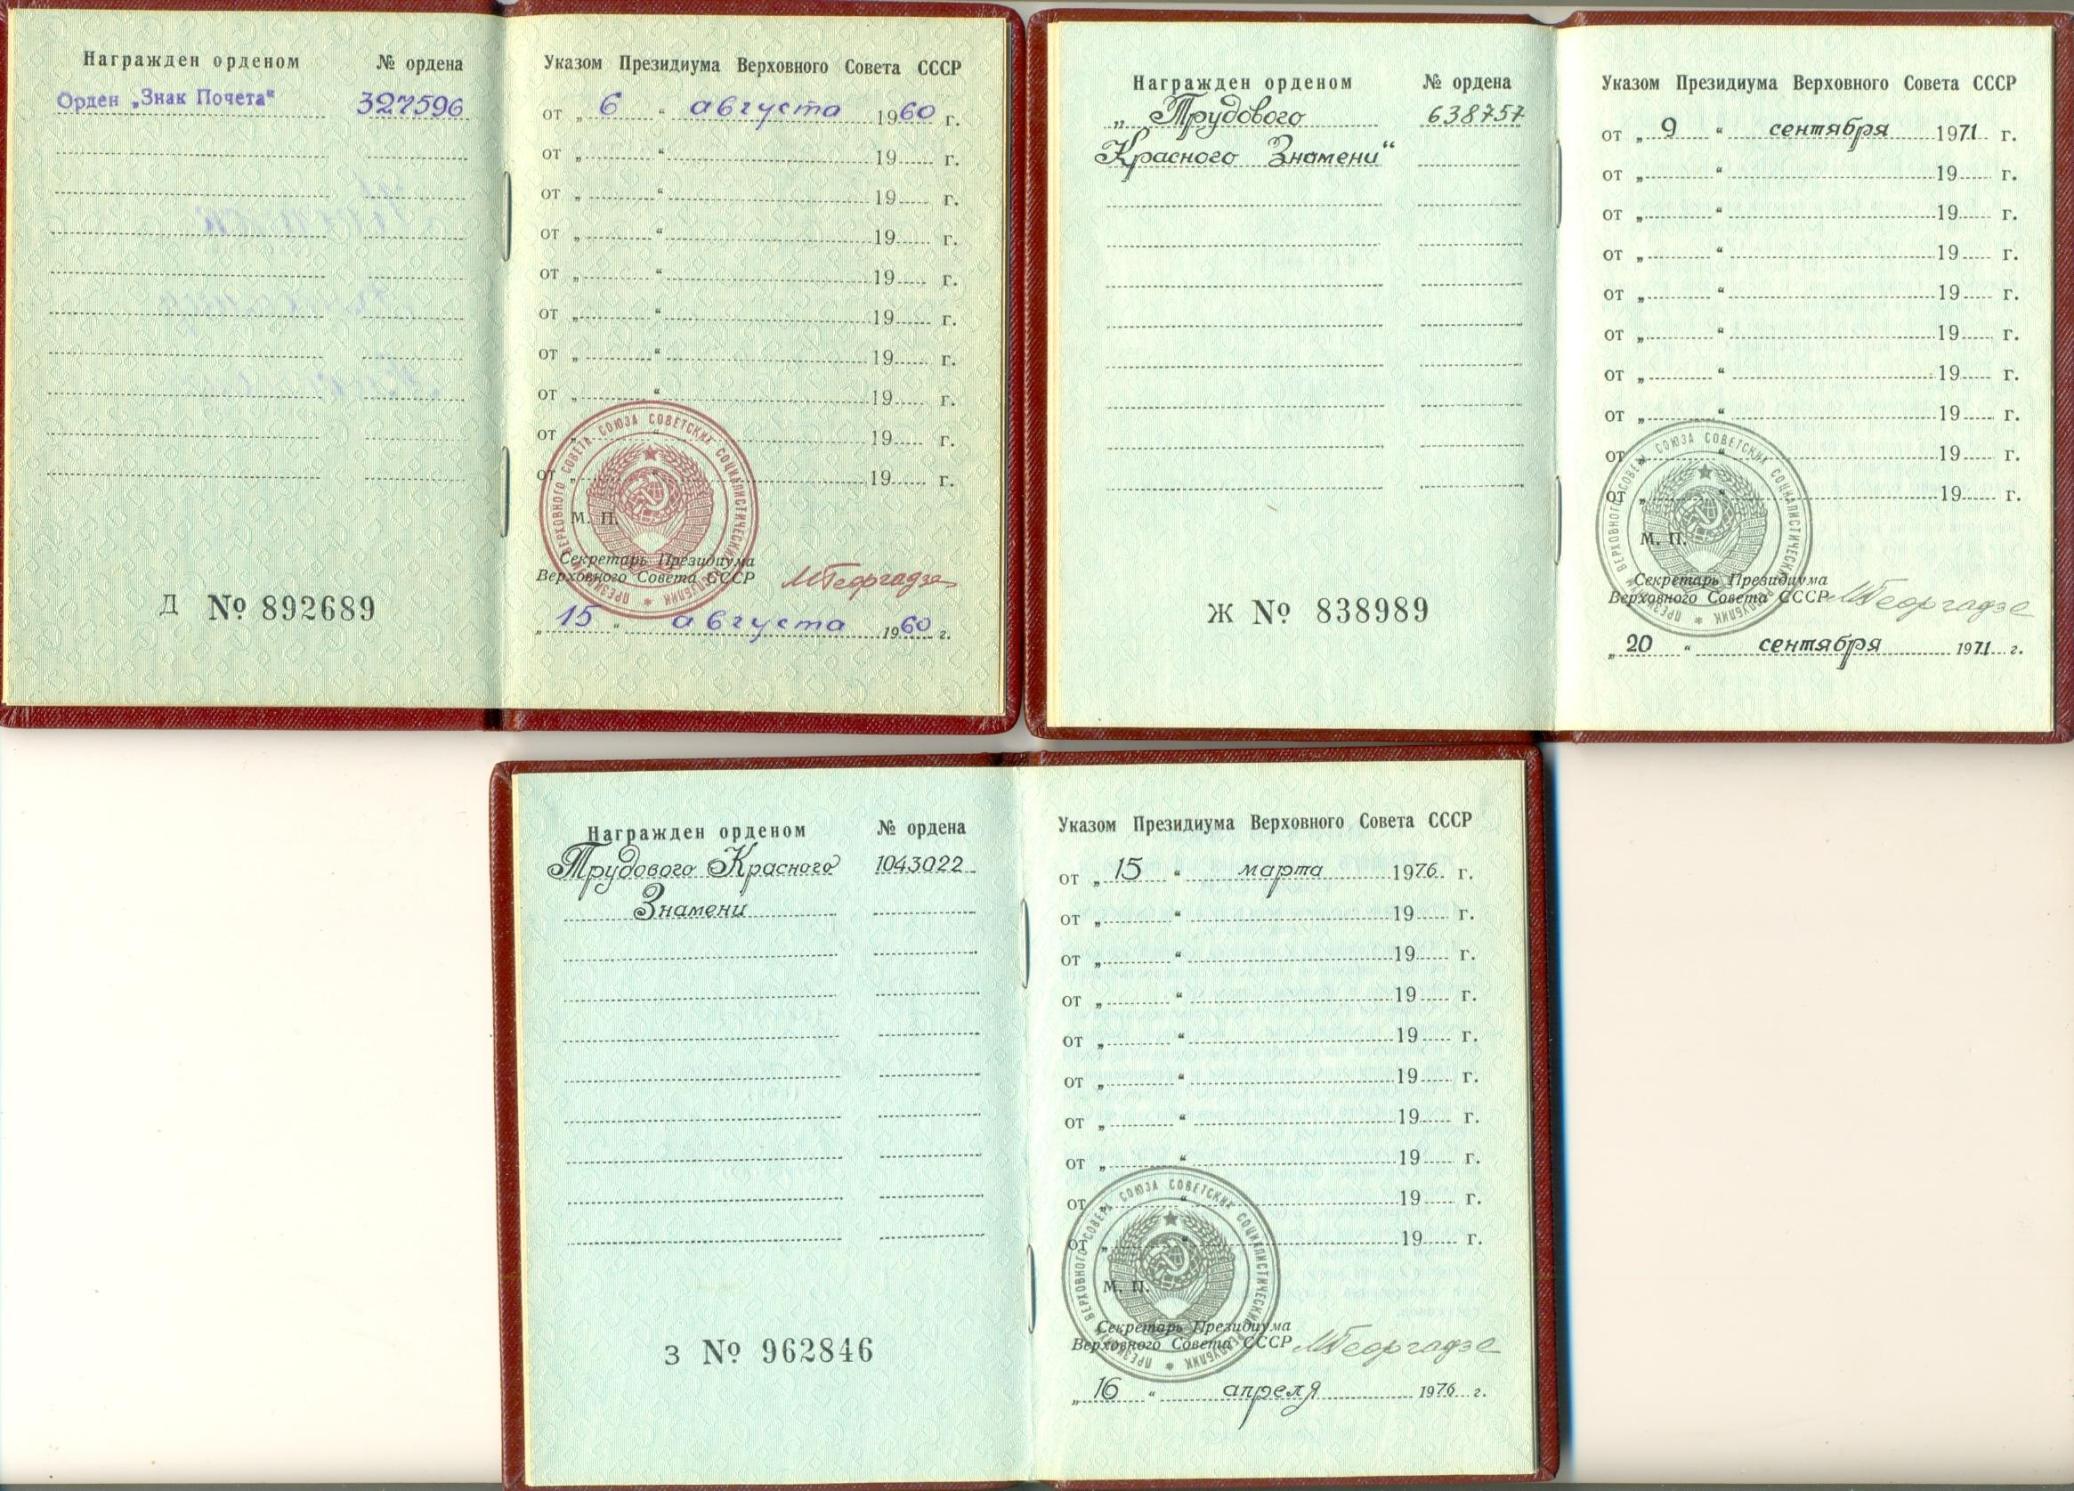 Награжден орденом № ордена
Орден „Знак Почета“ 327596
Д № 892689
Указом Президиума Верховного Совета СССР
от „ 6 “ августа 1960 г.
от „ “ 19 г.
от „ “ 19 г.
от „ “ 19 г.
от „ “ 19 г.
от „ “ 19 г.
от „ “ 19 г.
от „ “ 19 г.
от „ “ 19 г.
от „ “ 19 г.
ПРЕЗИДИУМ ВЕРХОВНОГО СОВЕТА СОЮЗА СОВЕТСКИХ СОЦИАЛИСТИЧЕСКИХ РЕСПУБЛИК
М. П.
Секретарь Президиума
Верховного Совета СССР МГеоргадзе
„ 15 “ августа 1960 г.
Награжден орденом № ордена
„ Трудового 638757
Красного Знамени“
Ж № 838989
Указом Президиума Верховного Совета СССР
от „ 9 “ сентября 1971 г.
от „ “ 19 г.
от „ “ 19 г.
от „ “ 19 г.
от „ “ 19 г.
от „ “ 19 г.
от „ “ 19 г.
от „ “ 19 г.
от „ “ 19 г.
от „ “ 19 г.
ПРЕЗИДИУМ ВЕРХОВНОГО СОВЕТА СОЮЗА СОВЕТСКИХ СОЦИАЛИСТИЧЕСКИХ РЕСПУБЛИК
М. П.
Секретарь Президиума
Верховного Совета СССР МГеоргадзе
„ 20 “ сентября 1971 г.
Награжден орденом № ордена
Трудового Красного 1043022
Знамени
З № 962846
Указом Президиума Верховного Совета СССР
от „ 15 “ марта 1976 г.
от „ “ 19 г.
от „ “ 19 г.
от „ “ 19 г.
от „ “ 19 г.
от „ “ 19 г.
от „ “ 19 г.
от „ “ 19 г.
от „ “ 19 г.
от „ “ 19 г.
ПРЕЗИДИУМ ВЕРХОВНОГО СОВЕТА СОЮЗА СОВЕТСКИХ СОЦИАЛИСТИЧЕСКИХ РЕСПУБЛИК
М. П.
Секретарь Президиума
Верховного Совета СССР МГеоргадзе
„ 16 “ апреля 1976 г.